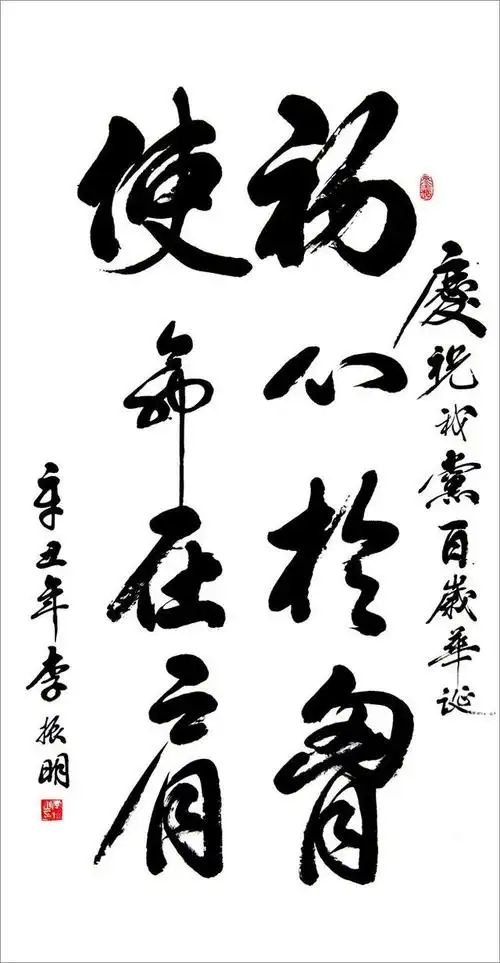 慶祝我黨百歲華誕
初心於胷
使命在肩
辛丑年李振明